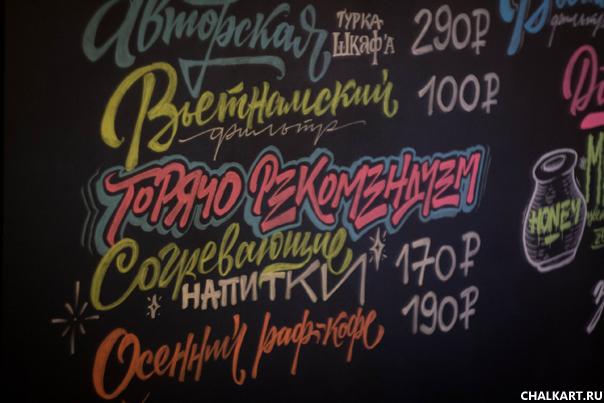 Авторская
ТУРКА
ШКАФ'А
290₽
Вьетнамский
фильтр
100₽
ГОРЯЧО РЕКОМЕНДУЕМ
Согревающие
НАПИТКИ
170₽
Осенний раф-кофе
190₽
фильтр
HONEY
CHALKART.RU